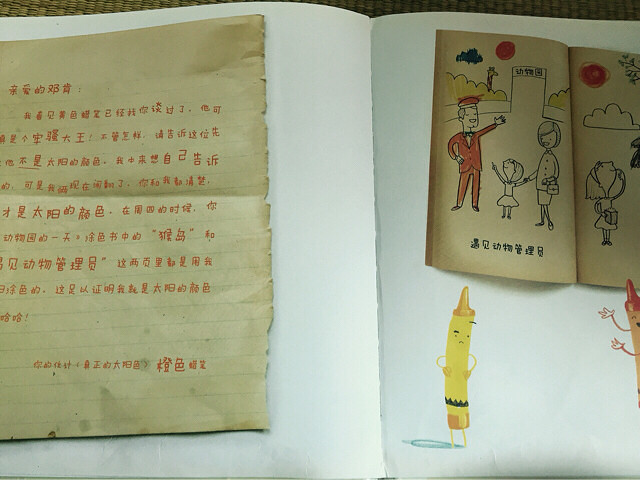 亲爱的邓肯：
我看见黄色蜡笔已经找你谈过了，他可
是个牢骚大王！不管怎样，请告诉这位先
他不是太阳的颜色。我本来想自己告诉
的，可是我俩现在闹翻了，你和我都清楚，
才是太阳的颜色。在周四的时候，你
动物园的一天》涂色书中的“猴岛”和
见动物管理员”这两页里都是用我
阳涂色的，这足以证明我就是太阳的颜色
哈哈！
你的伙计（真正的太阳色）橙色蜡笔
动物园
遇见动物管理员